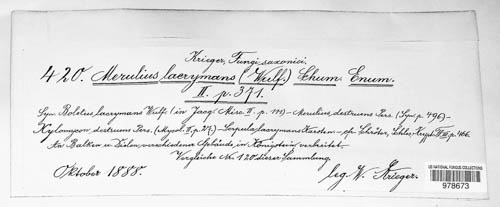 Krieger, Fungi saxonici.
420. Merulius lacrymans (Wulf.) Schum. Enum.
II. p. 371.
Syn. Boletus lacrymans Wulf. (in Jacq. Misc. II. p. 111) – Merulius destruens Pers. (Syn. p. 496) –
Xylomyzon destruens Pers. (Mycol. II. p. 27) – Serpula lacrymans Karsten – cfr. Schröter, Schles. Krypt. Fl. III p. 466.
An Balken u. Dielen verschiedener Gebäude in Königstein verbreitet.
Vergleiche No. 120 dieser Sammlung.
Oktober 1888. leg. W. Krieger.
US NATIONAL FUNGUS COLLECTIONS
978673